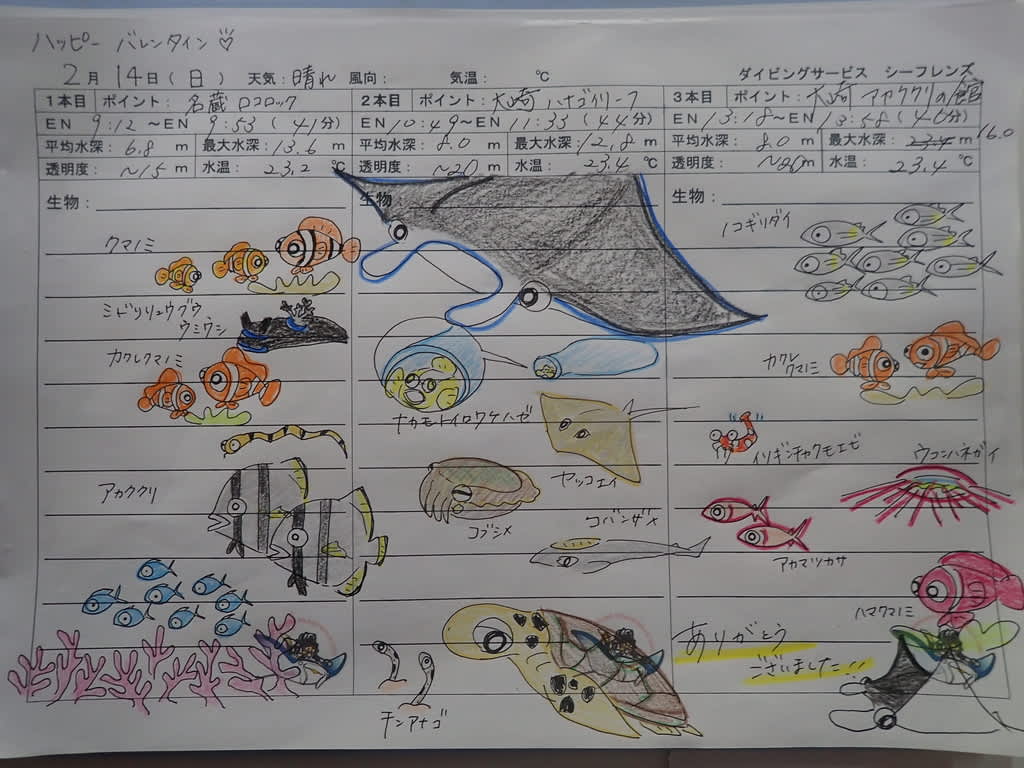 ハッピー バレンタイン♡
2月 14日(日) 天気:晴れ 風向: 気温: ℃ ダイビングサービス シーフレンズ
1本目 ポイント:名蔵 ロコロック
EN 9:12 ~EN 9:53 (41分)
平均水深: 6.8 m 最大水深: 13.6 m
透明度: ~15 m 水温: 23.2 ℃
生物:
クマノミ
ミドリリュウグウ
ウミウシ
カクレクマノミ
アカククリ
2本目 ポイント:大崎 ハナゴイリーフ
EN 10:49~EN 11:33 (44分)
平均水深: 8.0 m 最大水深: 12.8 m
透明度: ~20 m 水温: 23.4 ℃
生物
ナカモトイロワケハゼ
ヤッコエイ
コブシメ
コバンザメ
チンアナゴ
3本目 ポイント:大崎 アカククリの館
EN 13:18~EN 13:58 (40分)
平均水深: 8.0 m 最大水深: 23.4 m 16.0
透明度: ~20m 水温: 23.4 ℃
生物:
ノコギリダイ
カクレ
クマノミ
イソギンチャクモエビ
ウコンハネガイ
アカマツカサ
ハマクマノミ
ありがとう
ございました!!